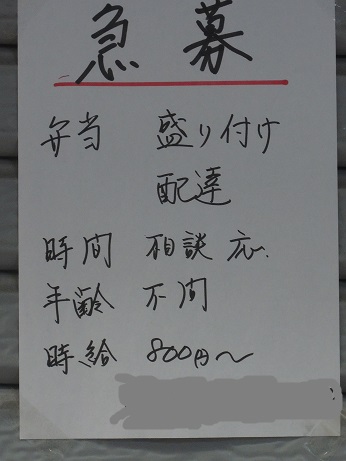 急募
弁当 盛り付け
配達
時間 相談 応.
年齢 不問
時給 800円〜